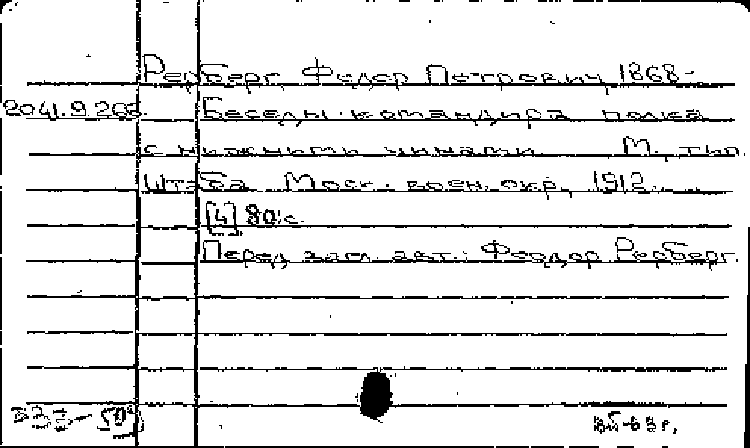 Рерберг, Федор Петрович, 1868-
2041.9.268. Беседы командира полка
с нижними чинами М., тип.
Штаба Моск. воен. окр., 1912.
[4] 80 с.
Перед загл. авт.: Феодор Рерберг.